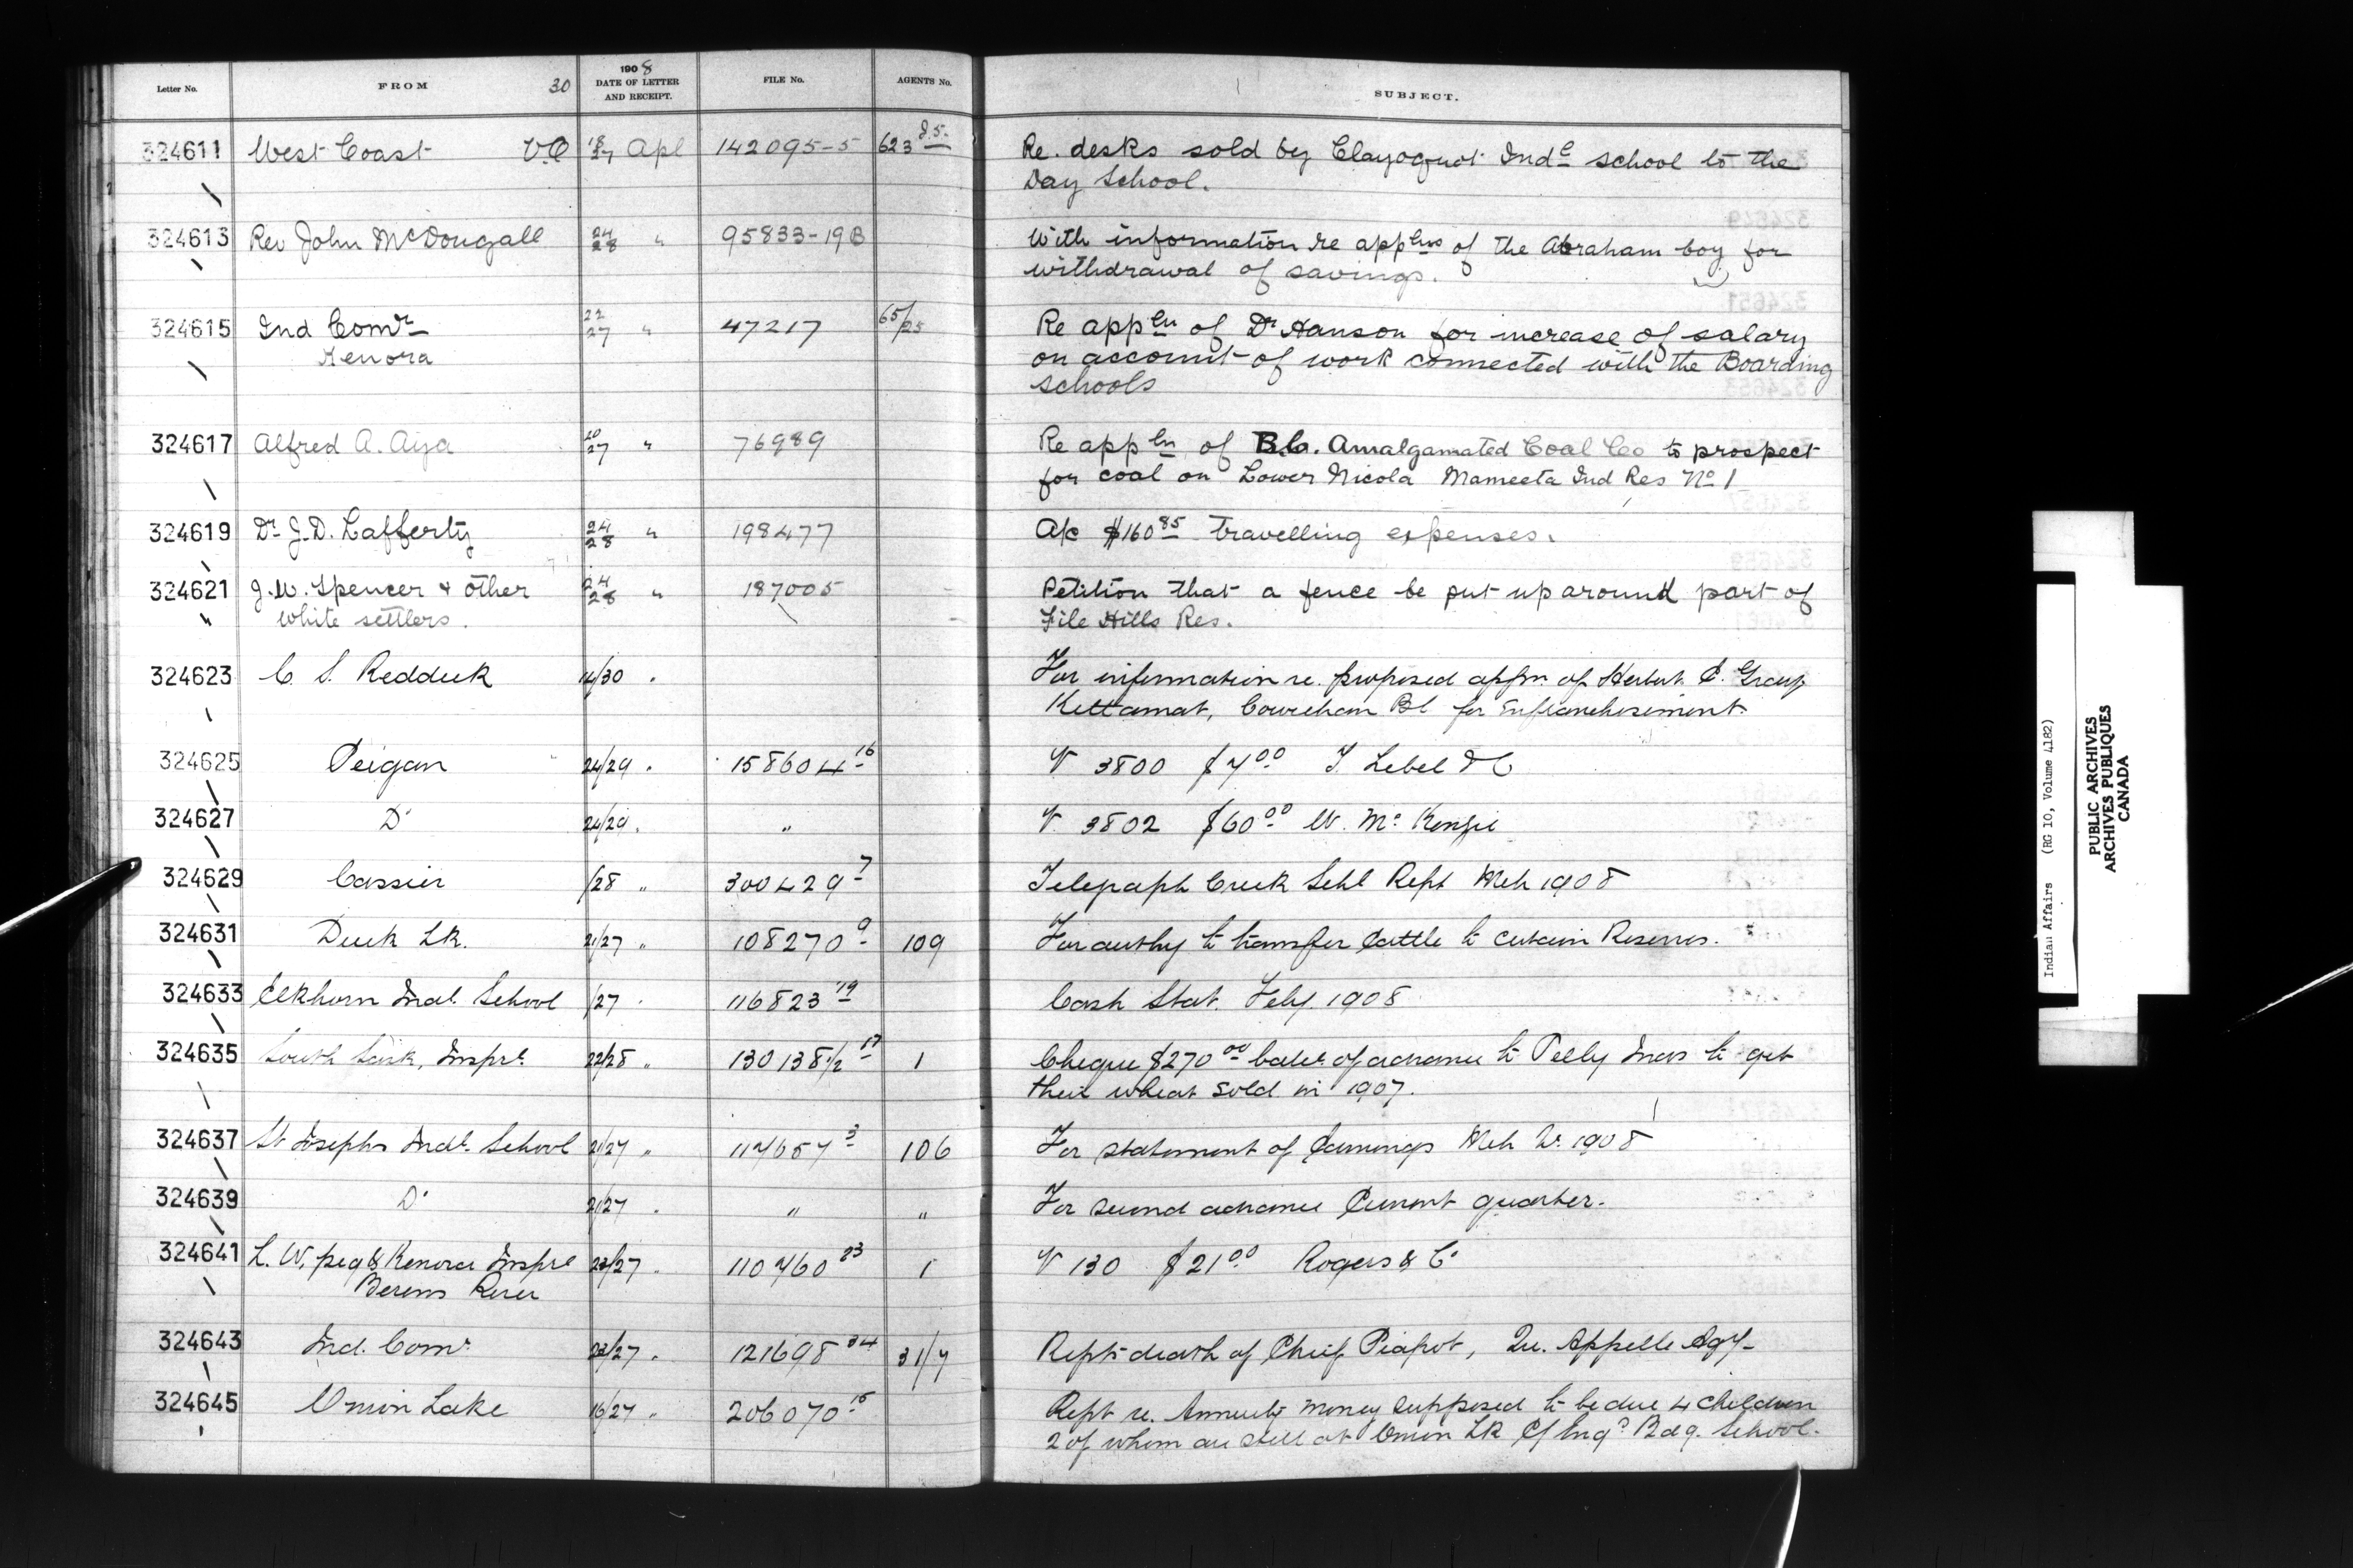 Letter No. FROM 30 1908 DATE OF LETTER AND RECEIPT. FILE No. AGENTS No. SUBJECT.
324611 West Coast 27 Apl 142095-5 623 Re. desks sold by Clayoquot Ind school to the
Day School.
324613 Rev John McDougall 24/28 " 95833-19B With information re appln of the Abraham boy for
withdrawal of savings.
324615 Ind Comr 22/27 " 47217 65/25 Re appln of Dr Hanson for increase of salary
Kenora on account of work connected with the Boarding
schools
324617 Alfred A. 20/27 " 76989 Re appln of B.C. Amalgamated Coal Co to prospect
for coal on Lower Nicola Mameeta Ind Res No 1
324619 Dr J.D. Lafferty 24/28 " 198477 A/c $160 85 travelling expenses.
324621 J.W. Spencer & other 24/28 " 187005 Petition that a fence be put up around part of
white settlers. File Hills Res.
324623 C. S. 14/30 " For information re. proposed of
Cowichan BC for Enfranchisement.
324625 Peigan 24/29 " 158604 16 V 3800 $7 00 T. Lebel & C
324627 Do 24/29 " " V. 3802 $60 00 W. McKenzie
324629 Cassier /28 " 300429 7 Telegraph Creek Schl Rept Mch 1908
324631 Duck Lk. 21/27 " 108270 9 109 For authy to transfer Cattle to certain Reserves.
324633 Elkhorn Indl School /27 " 116823 19 Cash Stat. Feby. 1908
324635 South Sask. Inspr. 22/28 " 130138 1/2 17 1 Cheque $270 00 of advance to Pelly Inds to get
their wheat sold in 1907.
324637 St Josephs Indl. School 21/27 " 3 106 For statement of Earnings Mch 1908
324639 Do 21/27 " " " For second advance Current quarter.
324641 L. W.peg & Kenora Inspr 23/27 " 110760 23 1 V 130 $21 00 Rogers & Co
Berens River
324643 Ind. Comr 23/27 " 121698 34 31/7 Rept death of Chief Piapot, Qu. Appelle Agy-
324645 Onion Lake 16/27 " 206070 15 Rept re. Annuity money supposed to be due 4 children
2 of whom are still at Onion Lk C of Eng Bdg. School.
Indian Affairs (RG 10, Volume 4182)
PUBLIC ARCHIVES
ARCHIVES PUBLIQUES
CANADA